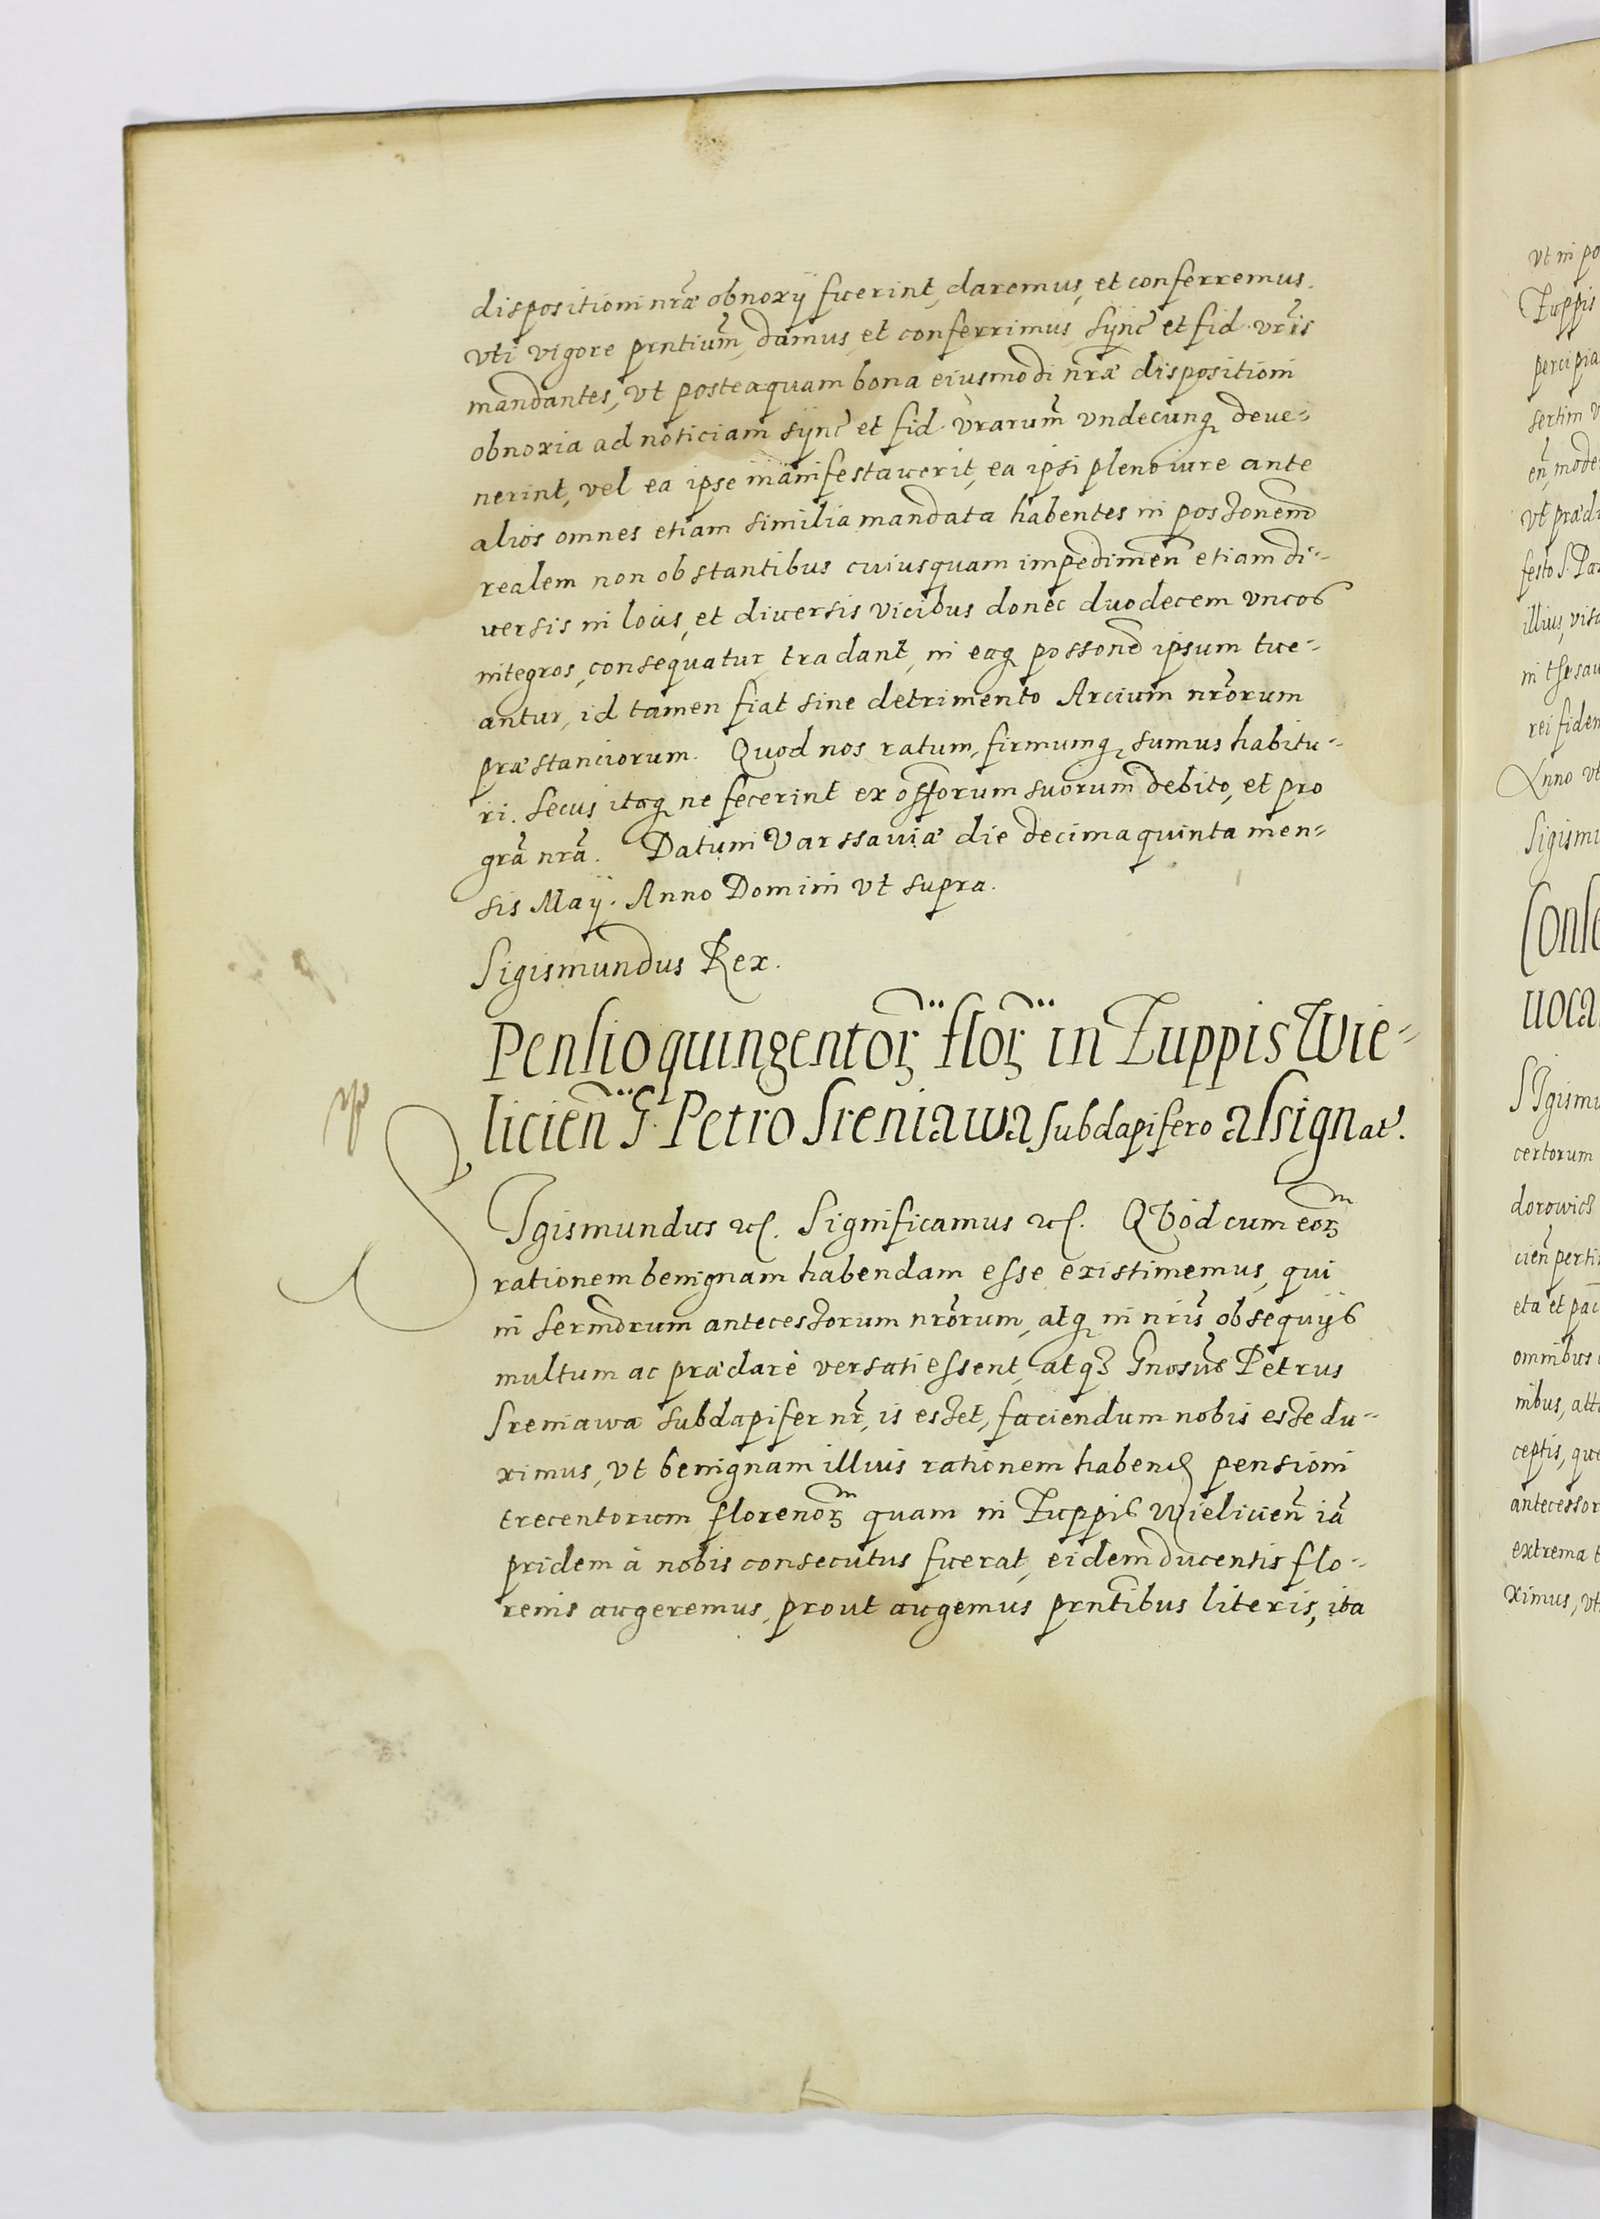 dispositioni nrãe obnoxij fuerint, daremus, et conferremus.
vti vigore prntium̃, damus, et conferrimus, Sync̃ et fid. vrĩs
mandantes, vt posteaquam bona eiusmodi nrãe dispositioni
obnoxia ad noticiam Sync̃ et fid. vrãrum̃ vndecunq deue-
nerint, vel ea ipse manifestauerit, ea ipsi pleno iure ante
alios omnes etiam similia mandata habentes in possonem̃
realem non obstantibus cuiusquam impedimeñ etiam di-
uersis in locis, et diuersis vicibus donec duodecem vncos
integros, consequatur, tradant, in eaq possone ipsum tue-
antur, id tamen fiat sine detrimento Arcium nrõrum
præstanciorum. Quod nos ratum, firmumq sumus habitu-
ri. Secus itaq ne fecerint ex offorum suorum debito, et pro
grã nrã. Datum Varssauiæ die decima quinta men-
sis Maij. Anno Domini vt supra.
Sigismundus Rex.
Pensio quingentoꝝ floꝝ in Zuppis Wie-
licieñ G. Petro Sreniawa subdapifero assignat̃.
SIgismundus etc. Significamus etc. QVod cum eoꝝ
rationem benignam habendam esse existimemus, qui
in Sermorum antecessorum nrõrum, atq in nrĩs obsequijs
multum ac præclarè versati essent, atqꝫ Gnosus Petrus
Sreniawa subdapifer nr̃, is esset, faciendum nobis esse du-
ximus, vt benignam illius rationem habeñ pensioni
trecentorum florenoꝝ quam in Zuppis Wielicieñ iã
pridem à nobis consecutus fuerat, eidem ducentis flo-
renis augeremus, prout augemus prntibus literis, ita
vt in po
Zuppis
percipia
sertim v
eñ, mode
vt prædi
festo S. Pa
illius, visa
in thesau
rei fidem
Anno vt
Sigismu
Conse
uoca
SIgismu
certorum
dorowicz
cieñ perti
eta et pac
omnibus
nibus, att
ceptis, que
antecessor
extrema
ximus, vt